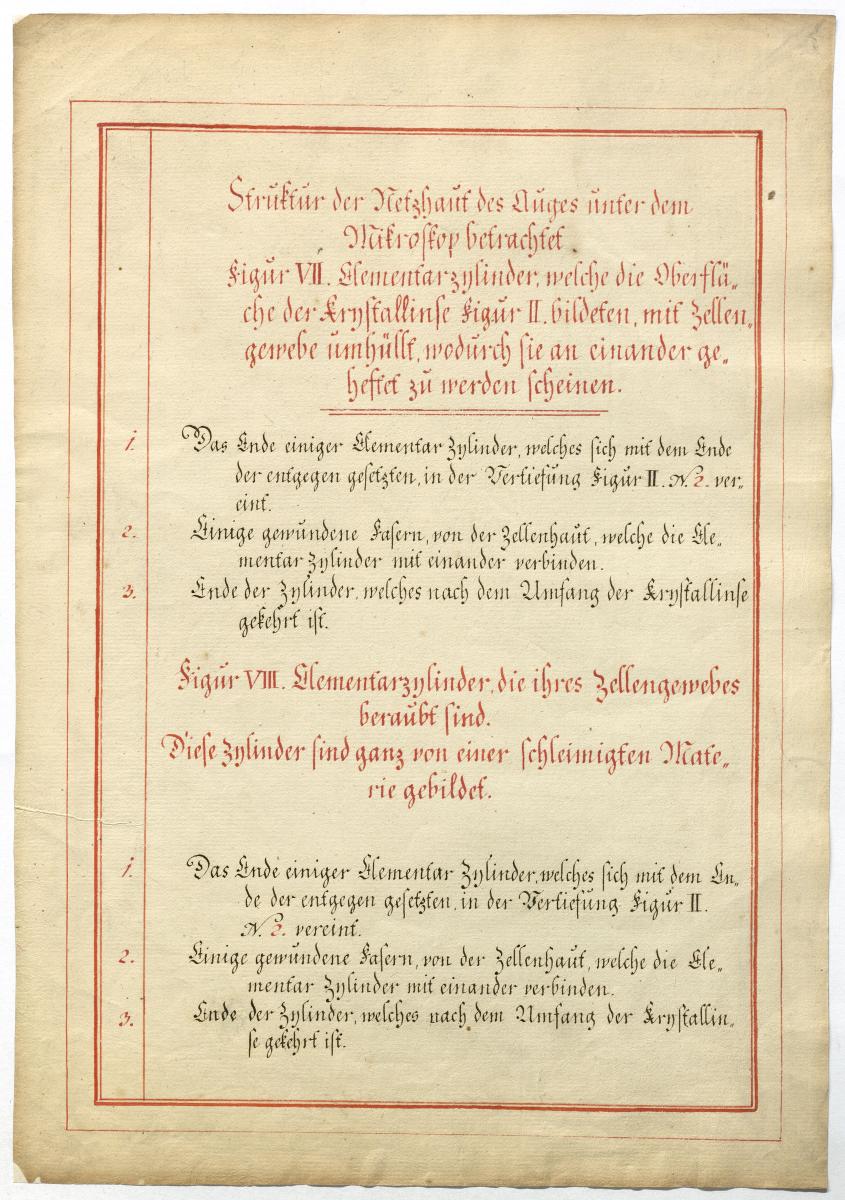 Struktur der Netzhaut des Auges unter dem
Mikroskop betrachtet.
Figur VII. Elementarzylinder, welche die Oberflä„
che der Krystallinse Figur II. bildeten, mit Zellen„
gewebe umhüllt, wodurch sie an einander ge„
heftet zu werden scheinen.
1. Das Ende einiger Elementar Zylinder, welches sich mit dem Ende
der entgegen gesetzten, in der Vertiefung Figur II. N. 2. ver„
eint.
2. Einige gewundene Fasern, von der Zellenhaut, welche die Ele„
mentar Zylinder mit einander verbinden.
3. Ende der Zylinder, welches nach dem Umfang der Krystallinse
gekehrt ist.
Figur VIII. Elementarzylinder, die ihres Zellengewebes
beraubt sind.
Diese Zylinder sind ganz von einer schleimigten Mate„
rie gebildet.
1. Das Ende einiger Elementar Zylinder, welches sich mit dem En„
de der entgegen gesetzten, in der Vertiefung Figur II.
N. 2. vereint.
2. Einige gewundene Fasern, von der Zellenhaut, welche die Ele„
mentar Zylinder mit einander verbinden.
3. Ende der Zylinder, welches nach dem Umfang der Krystallin„
se gekehrt ist.